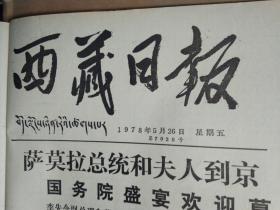 西藏日報
བོད་ལྗོངས་ཉིན་རེའི་ཚགས་པར
1978年5月26日 星期五
萨莫拉总统和夫人到京
国务院盛宴欢迎莫